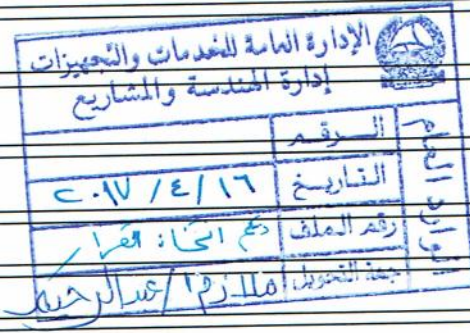 الإدارة العامة للخدمات والتجهيزات
إدارة الهندسة والمشاريع
الوارد العام
الرقم
التاريخ ١٦ / ٤ / ٢٠١٧
رقم الملف
جهة التحويل ملازم ١ / عبدالرحيم